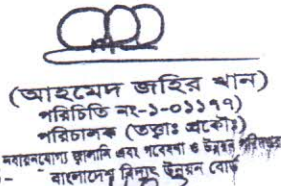 (আহমেদ জহির খান)
পরিচিতি নং-১-০১১৭৭)
পরিচালক (তত্ত্বাঃ প্রকৌঃ)
নবায়নযোগ্য জ্বালানি এবং গবেষণা ও উন্নয়ন পরিদপ্তর
বাংলাদেশ বিদ্যুৎ উন্নয়ন বোর্ড